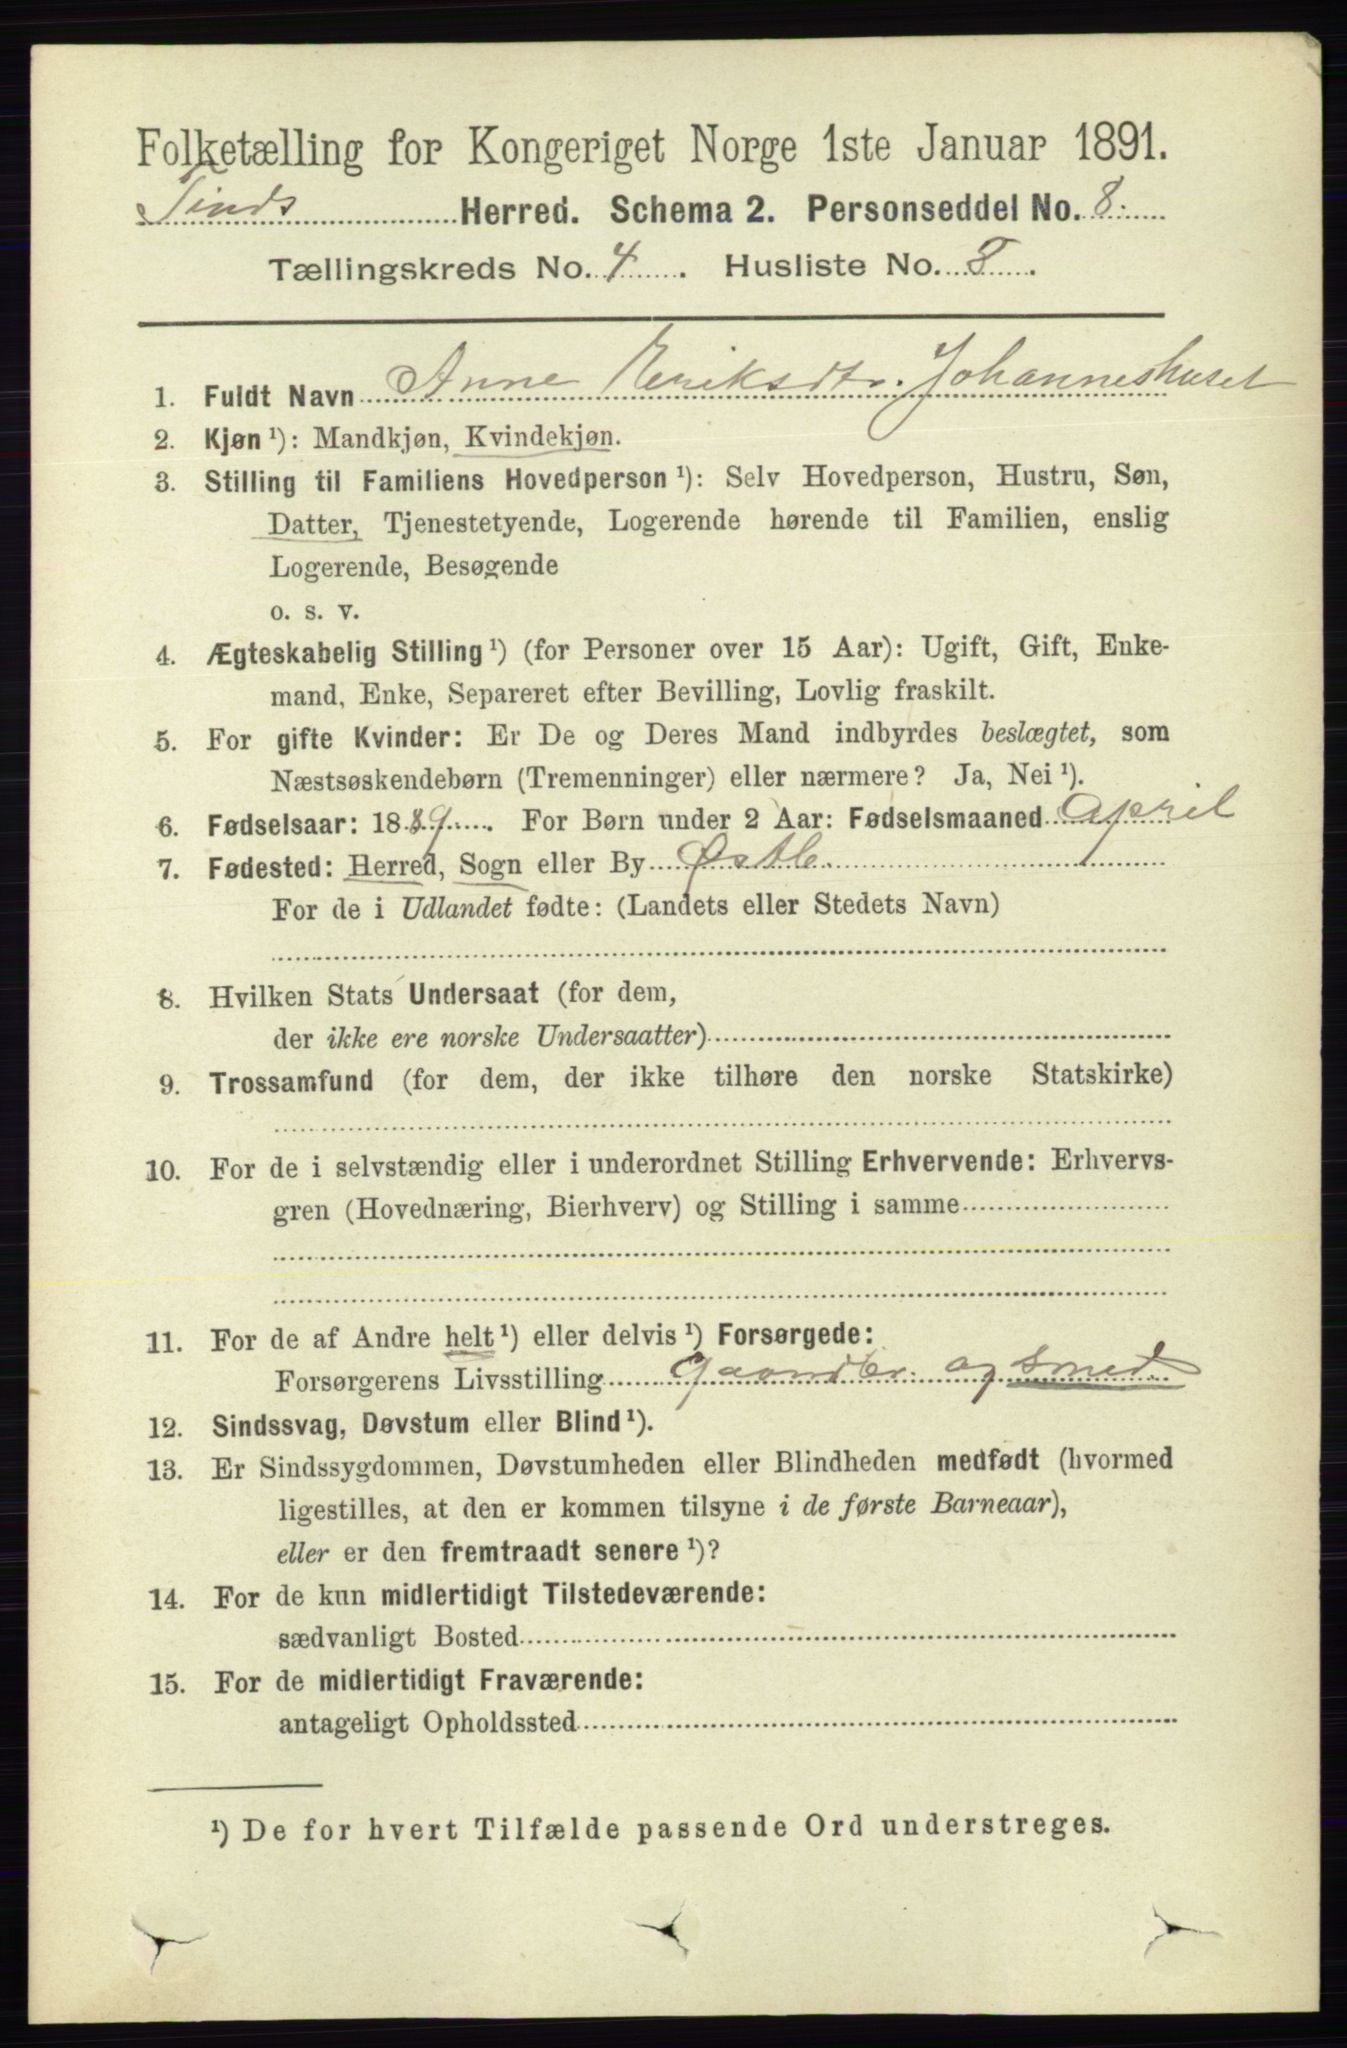 Folketælling for Kongeriget Norge 1ste Januar 1891.
Tinds Herred. Schema 2. Personseddel No. 8.
Tællingskreds No. 4. Husliste No. 8.
1. Fuldt Navn Anne Eeriksdtr. Johanneshuset
2. Kjøn ¹): Mandkjøn, Kvindekjøn.
3. Stilling til Familiens Hovedperson ¹): Selv Hovedperson, Hustru, Søn,
Datter, Tjenestetyende, Logerende hørende til Familien, enslig
Logerende, Besøgende
o. s. v.
4. Ægteskabelig Stilling ¹) (for Personer over 15 Aar): Ugift, Gift, Enke-
mand, Enke, Separeret efter Bevilling, Lovlig fraskilt.
5. For gifte Kvinder: Er De og Deres Mand indbyrdes beslægtet, som
Næstsøskendebørn (Tremenninger) eller nærmere? Ja, Nei ¹).
6. Fødselsaar: 1889. For Børn under 2 Aar: Fødselsmaaned April
7. Fødested: Herred, Sogn eller By Østb.
For de i Udlandet fødte: (Landets eller Stedets Navn)
8. Hvilken Stats Undersaat (for dem,
der ikke ere norske Undersaatter)
9. Trossamfund (for dem, der ikke tilhøre den norske Statskirke)
10. For de i selvstændig eller i underordnet Stilling Erhvervende: Erhvervs-
gren (Hovednæring, Bierhverv) og Stilling i samme
11. For de af Andre helt ¹) eller delvis ¹) Forsørgede:
Forsørgerens Livsstilling Gaardbr. og Smed
12. Sindssvag, Døvstum eller Blind ¹).
13. Er Sindssygdommen, Døvstumheden eller Blindheden medfødt (hvormed
ligestilles, at den er kommen tilsyne i de første Barneaar),
eller er den fremtraadt senere ¹)?
14. For de kun midlertidigt Tilstedeværende:
sædvanligt Bosted
15. For de midlertidigt Fraværende:
antageligt Opholdssted
¹) De for hvert Tilfælde passende Ord understreges.